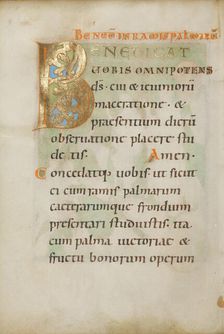 BENEDIC IN RAMIS PALMARU
BENEDICAT
UOBIS OMNIPOTENS
ds. cui & ieiuniorũ
maceratione. &
praesentium dierũ
obseruatione placere stu
detis. Amen.
Concedatq; uobis ut sicut
ei cum ramis palmarum
caeterarumque frondium
presentari studuistis. ita
cum palma uictoriae &
fructu bonorum operum